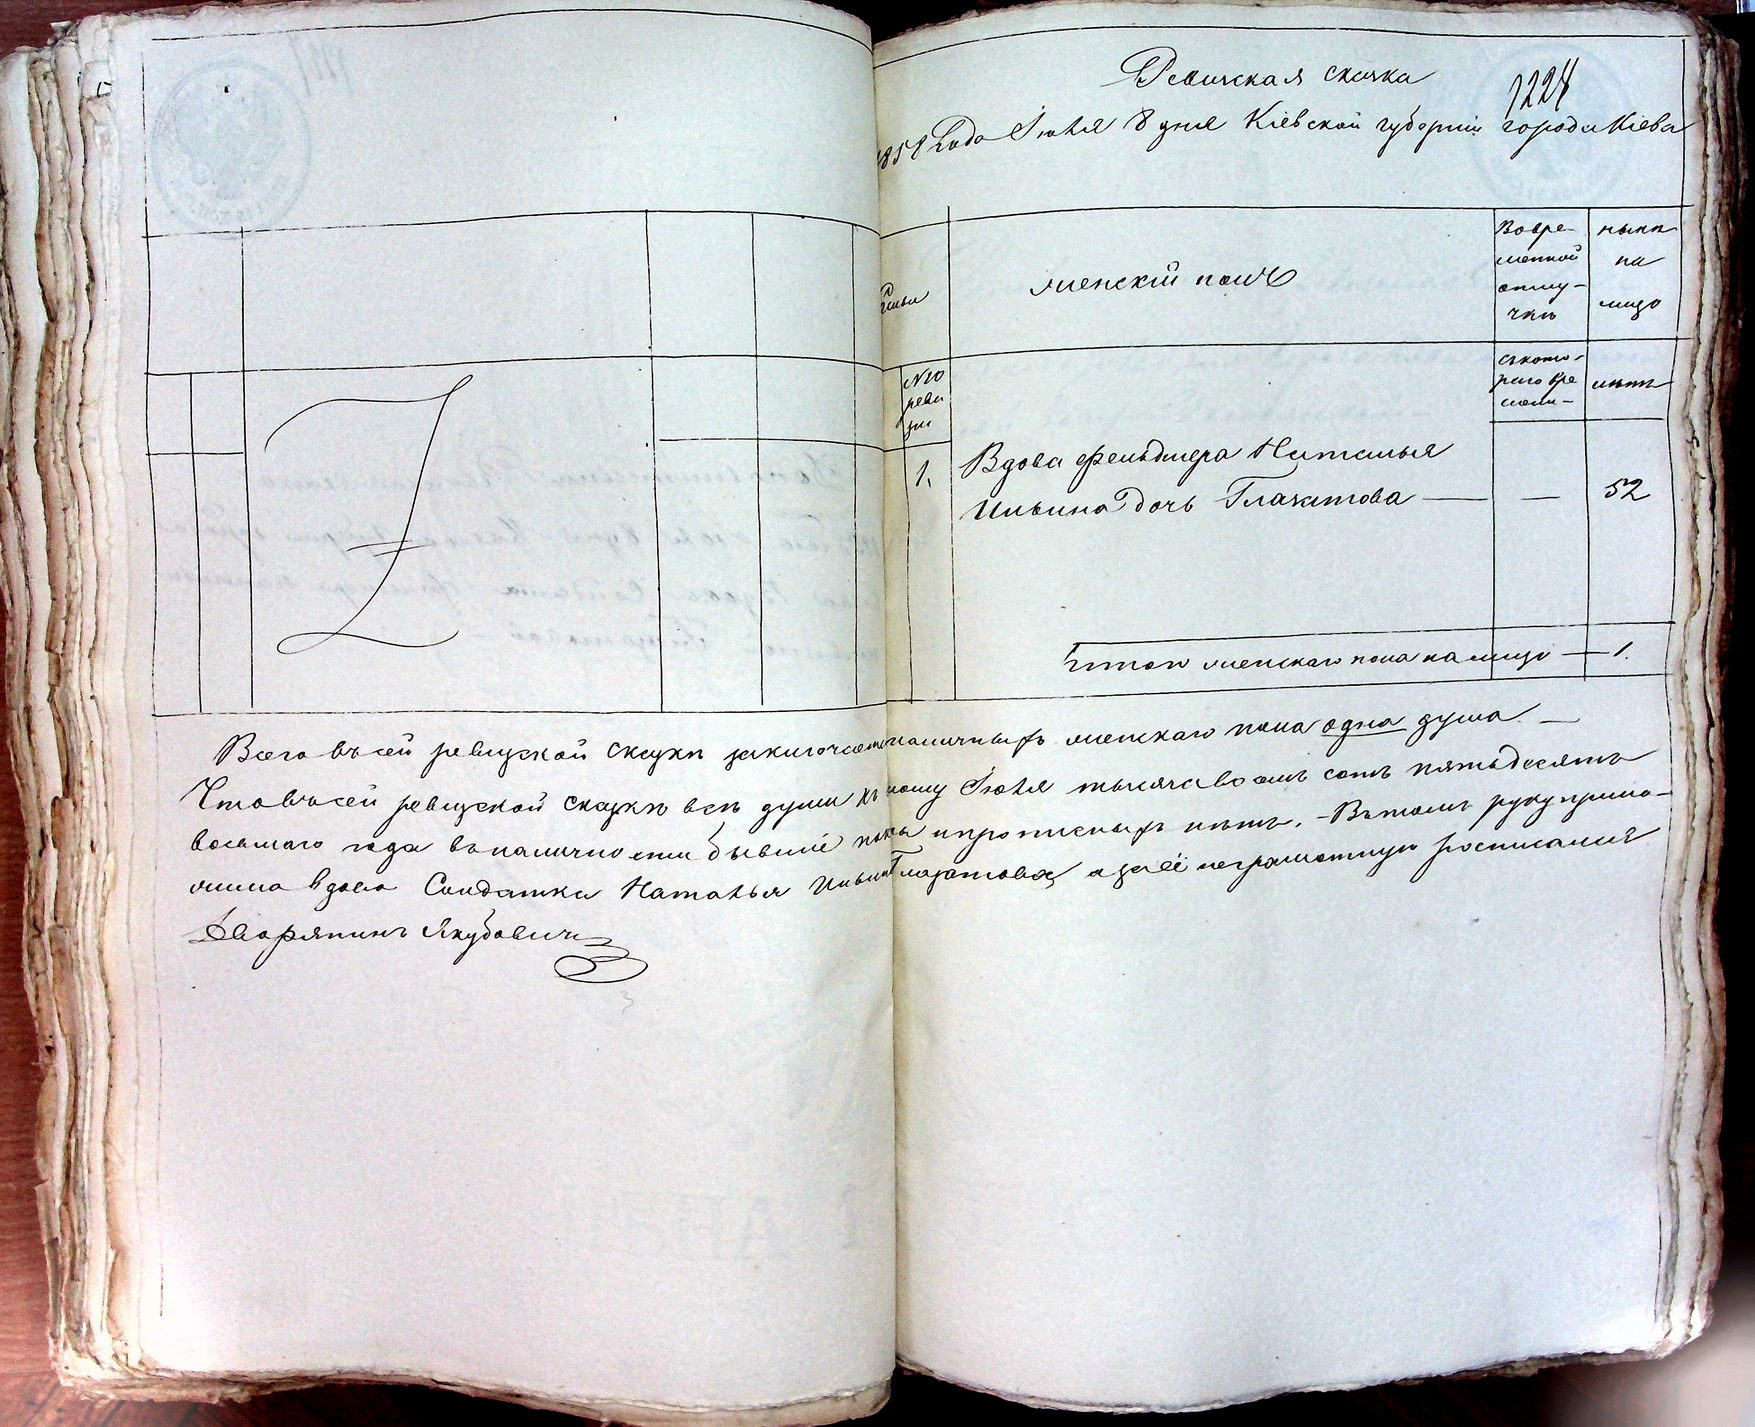 Ревизская сказка
1224
1858 Года Іюля 8 дня Кіевской губерніи города Кіева
Семьи
женскій полъ
Вовре-
менной
отлу-
чкѣ
нынѣ
на
лицо
№ по
реви
зіи
съкото-
раго вре
мени-
лѣтъ
1.
Вдова фельдшера Наталья
Ильина Дочь Глазатова — — 52
Итого женскаго пола налицо — 1.
Всего въ сей ревизской сказкѣ заключается наличныхъ женскаго пола одна душа —
Что въ сей ревизской сказкѣ всѣ души къ Іюля тысяча восемь сотъ пятьдесятъ
восьмаго года въ наличности бывшіе и прописныхъ нѣтъ. - Въ томъ руку прило-
жила вдова Солдатка Наталья Ильина Глазатова, а за её неграмотную росписался
Дворянинъ Якубовичъ